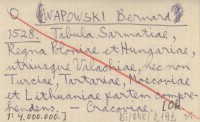 WAPOWSKI Bernard
1528. Tabula Sarmatiae,
Regna Poloniae et Hungariae,
utriusque Valachiae, nec non
Turciae, Tartariae, Moscoviae
et Lithuaniae partem compre-
hendens. – Cracoviae. [Ok.
1: 4.000.000.]